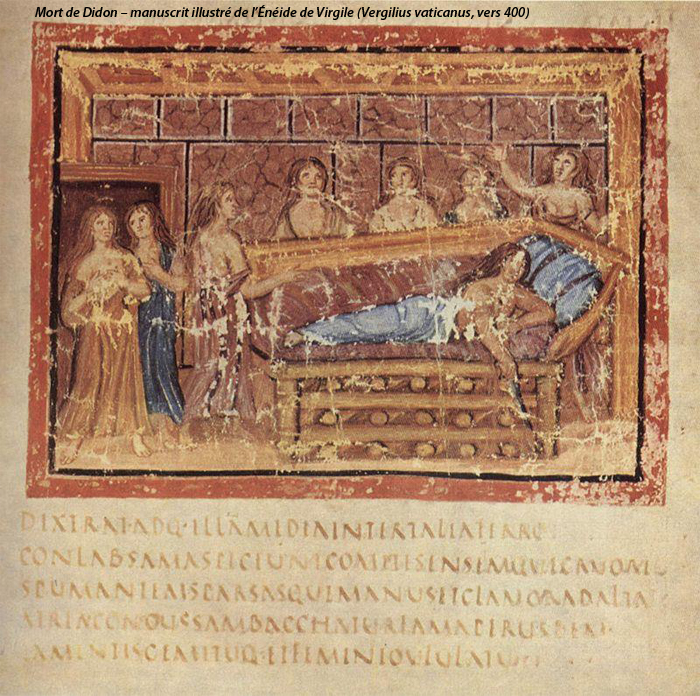 Mort de Didon – manuscrit illustré de l'Énéide de Virgile (Vergilius vaticanus, vers 400)
DIXERATADQ·ILLĀMEDIAINTERTALIAFERRO
CONLABSAMASPICIUNTCOMITESENSEMQUECRUORE
SPUMANTEMSPARSASQUEMANUSITCLAMORADALTA
ATRIACONCUSSAMBACCHATURFAMAPERURBE
LAMENTISGEMITUQ·ETFEMINEOULULATU